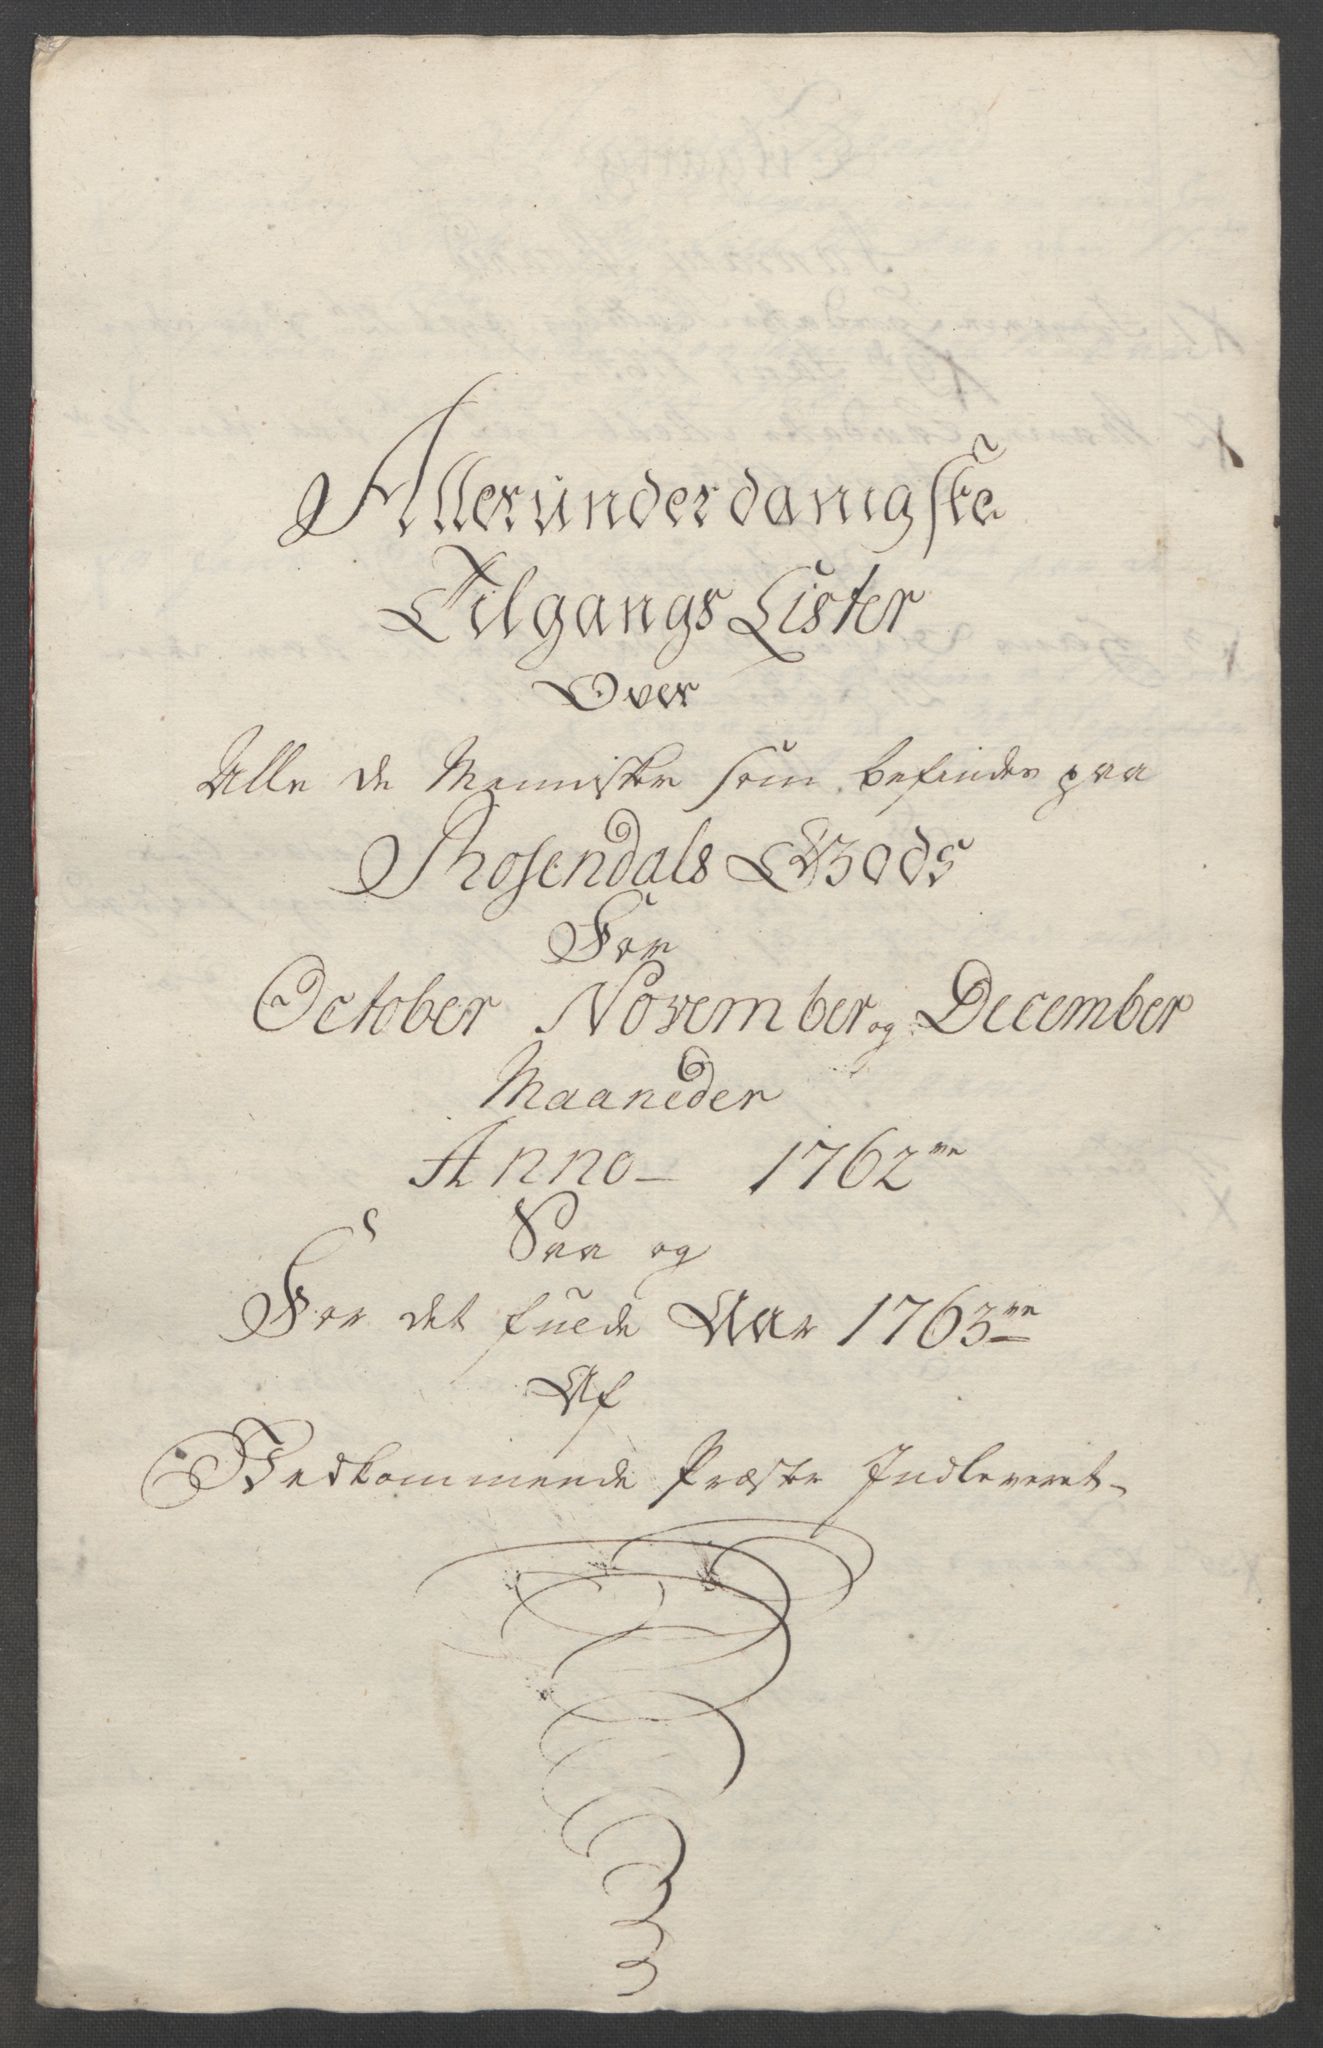 Allerúnderdanigste
Tilgangs Lister
Over
Alle de Mennisker som befindes paa
Rosendals Gods
For
October November og December
Maaneder
Anno 1762 
Saa og
For det fulde Aar 1763 
Af
Vedkommende Præster Indleveret